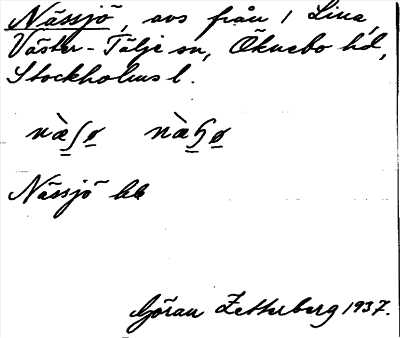 Nässjö, avs från 1 Lina,
Väster-Tälje sn, Öknebo hd,
Stockholms l.
næ̀ʃø næ̀ɧø
Nässjö hb
Göran Zetterberg 1937.